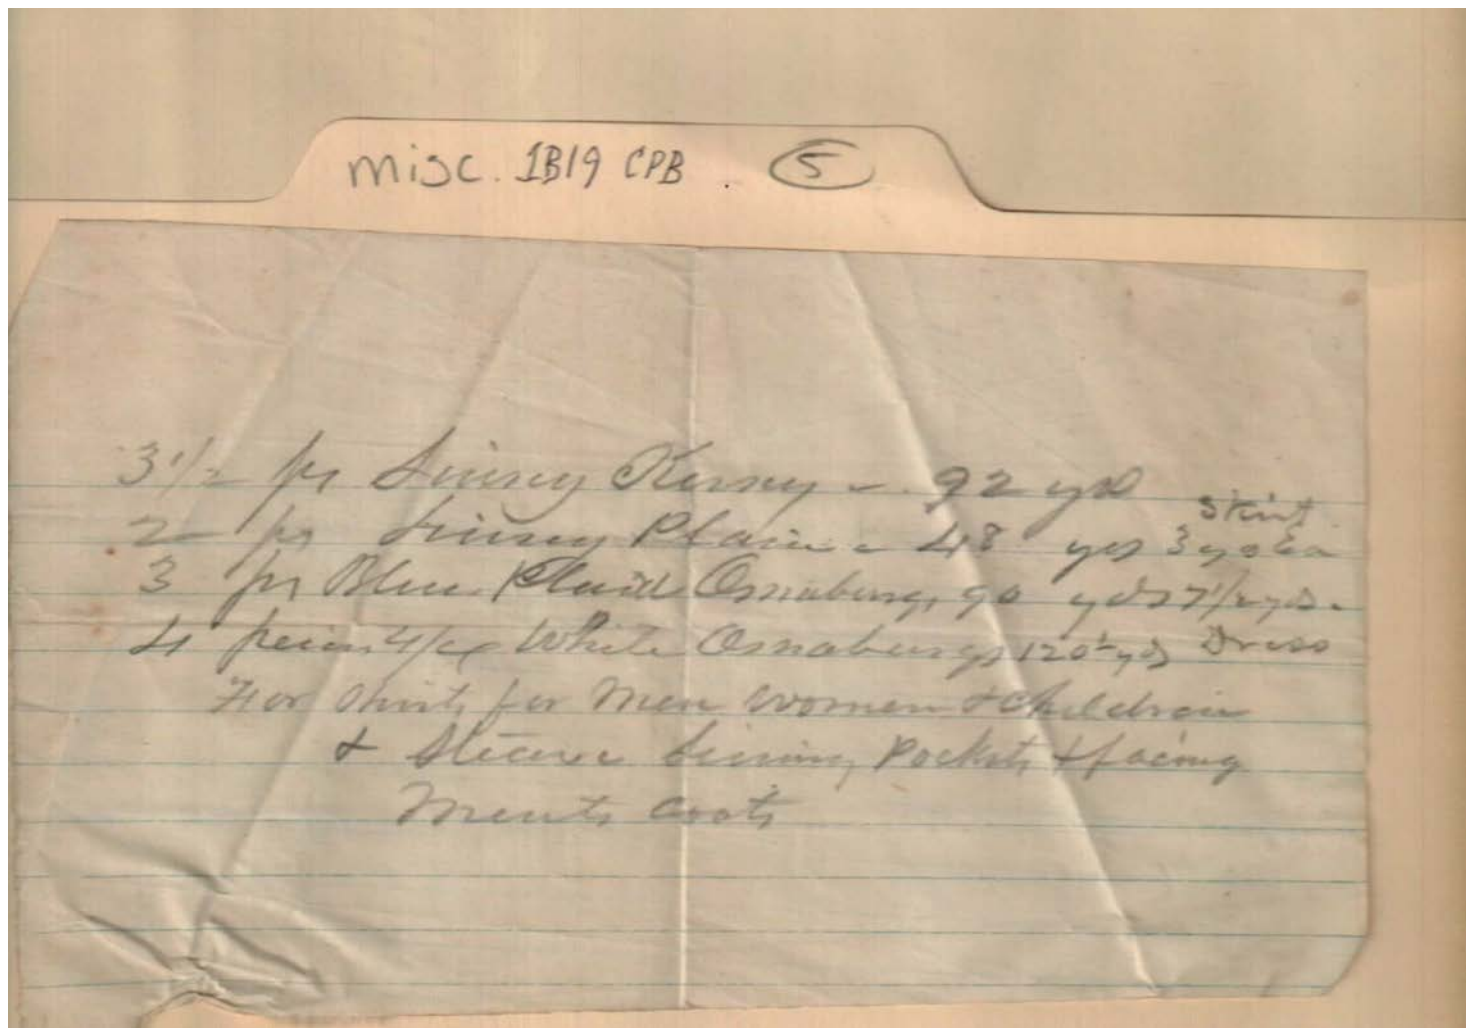 misc. 1B19 CPB . 5
3 1/2 ps Linsey Kersey - 92 yds
2 ps Linsey Plain - 48 yds 3 yds ea
Skirt
3 ps Blue Plaid Osnaburgs 90 yds 7 1/2 yds.
4 4/4 White Osnaburgs 120 yds Dress
For shirts for men women & children
& Sleeve Lining, Pockets & facing
coats